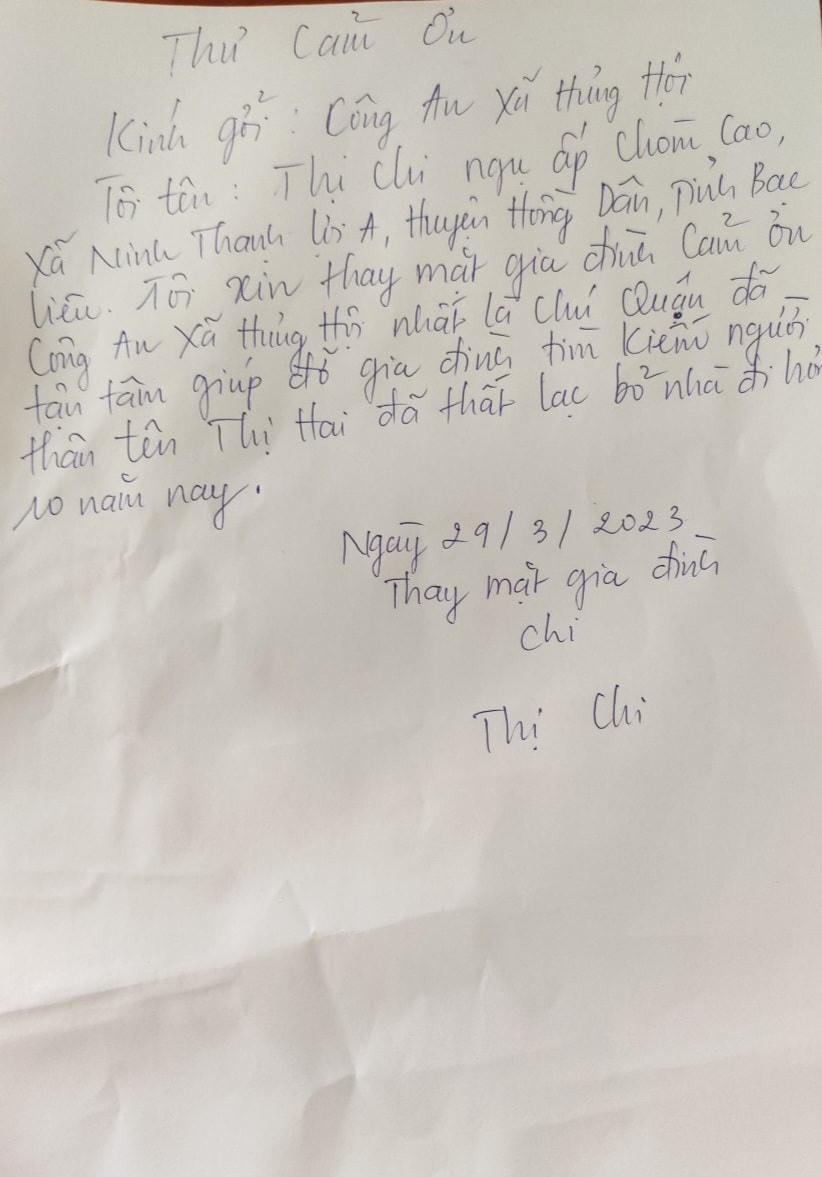 Thư Cảm Ơn
Kính gởi : Công An Xã Hưng Hội
Tôi tên : Thị Chi ngụ ấp Chòm Cao,
Xã Ninh Thạnh Lợi A, Huyện Hồng Dân, Tỉnh Bạc
liêu. Tôi xin thay mặt gia đình Cảm ơn
Công An Xã Hưng Hội nhất là chú Quận đã
tận tâm giúp đỡ gia đình tìm kiếm người
thân tên Thị Hai đã thất lạc bỏ nhà đi hơn
10 năm nay.
Ngày 29/3/2023
Thay mặt gia đình
chi
Thị Chi